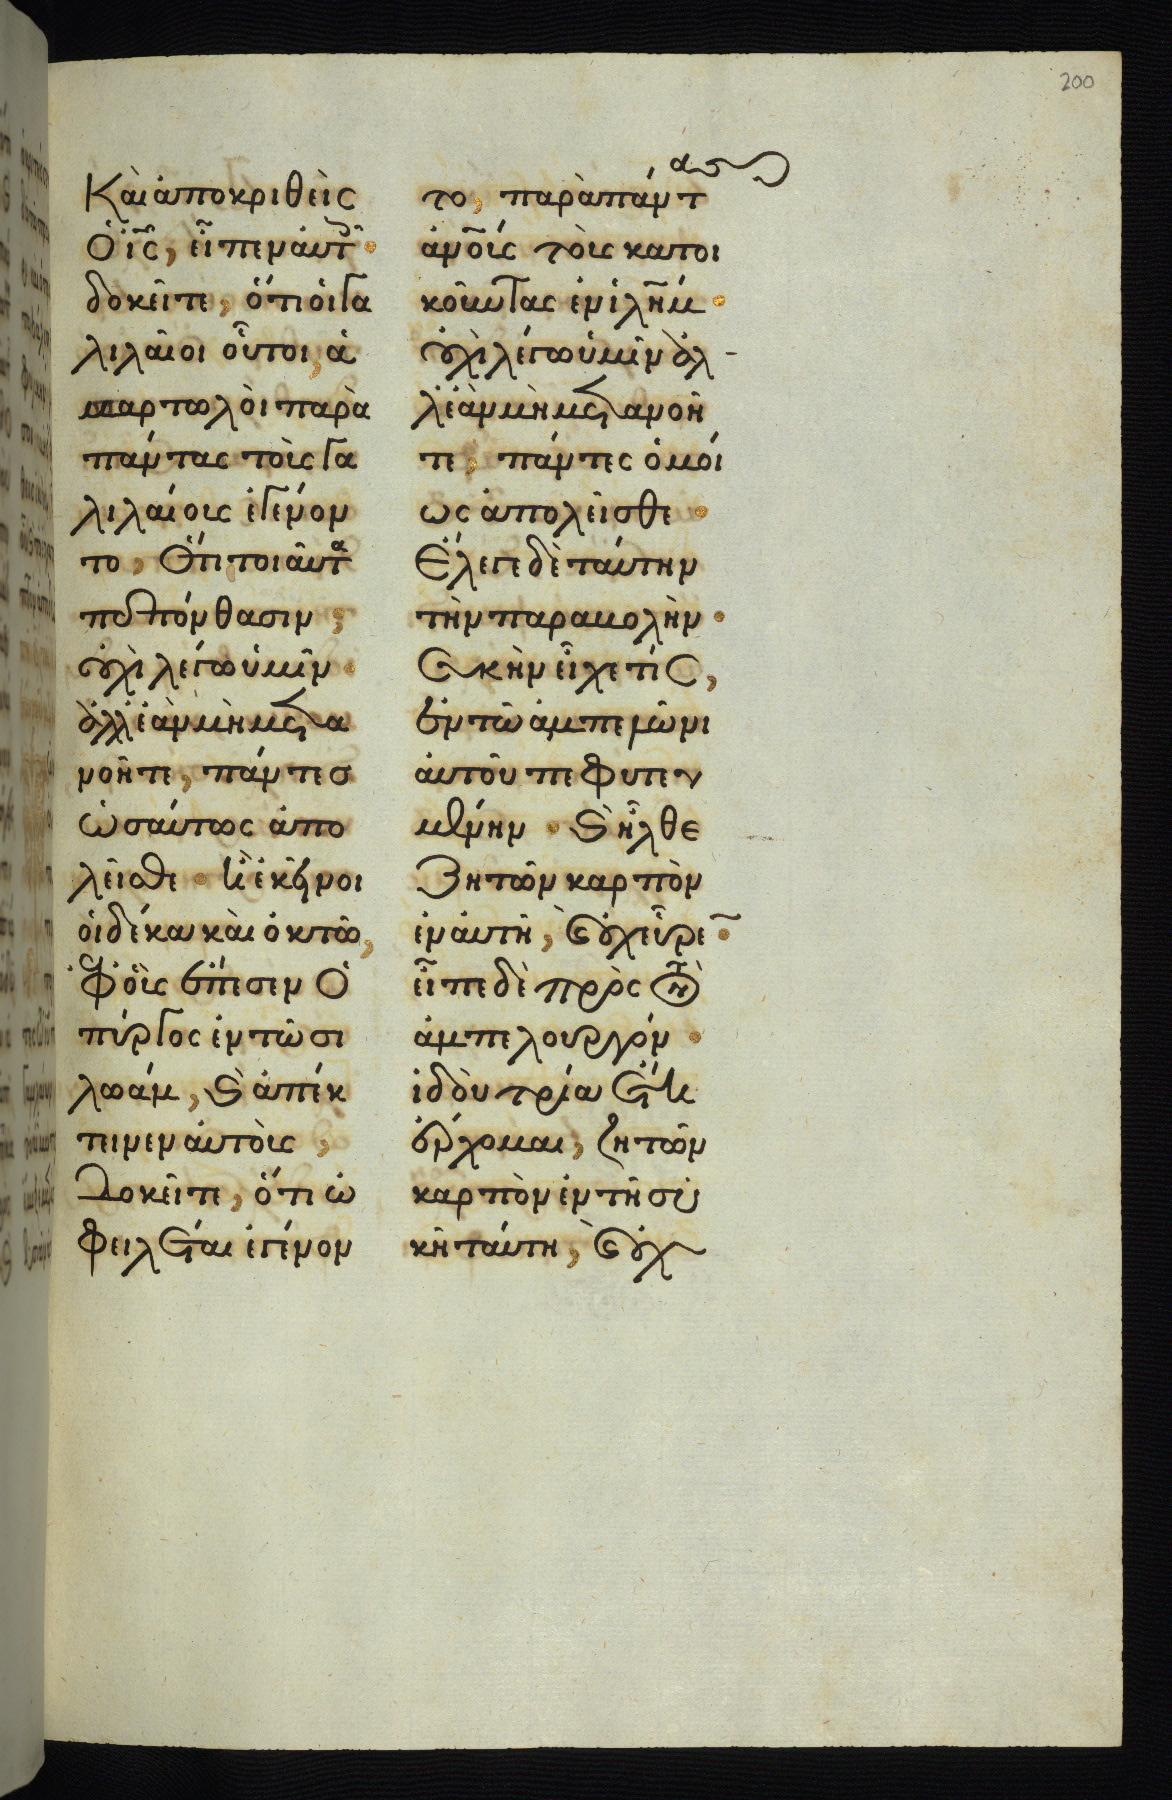 200
Καὶ ἀποκριθεὶς
ὁ ις, εἶπεν αὐτ
δοκεῖτε, ὅτι οἱ γα
λιλαῖοι οὗτοι, ἁ
μαρτωλοὶ παρὰ
πάντας τοὺς γα
λιλαίους ἐγένον
το, ὅτι τοιαῦτα
πεπόνθασιν;
οὐχὶ λέγω ὑμῖν
ἀλλ' ἐὰν μὴ μετα
νοῆτε, πάντες
ὡσαύτως ἀπο
λεῖσθε · ἢ ἐκεῖνοι
οἱ δέκα καὶ ὀκτὼ,
ἐφ' οὓς ἔπεσεν ὁ
πύργος ἐν τῷ σι
λωάμ, καὶ ἀπέκ
τεινεν αὐτοὺς,
δοκεῖτε, ὅτι ὀ
φειλέται ἐγένον
το, παρὰ πάντας
ἀνους τοὺς κατοι
κοῦντας ἐν ιλημ ·
οὐχὶ λέγω ὑμῖν ἀλ-
λ' ἐὰν μὴ μετανοῆ
τε, πάντες ὁμοί
ως ἀπολεῖσθε ·
Ἔλεγε δὲ ταύτην
τὴν παραβολὴν ·
συκῆν εἶχέ τις,
ἐν τῷ ἀμπελῶνι
αὐτοῦ πεφυτευ
μένην · καὶ ἦλθε
ζητῶν καρπὸν
ἐν αὐτῇ, καὶ οὐχ εὗρε ·
εἶπε δὲ πρὸς τὸν
ἀμπελουργόν ·
ἰδοὺ τρία ἔτη
ἔρχομαι, ζητῶν
καρπὸν ἐν τῇ συ
κῇ ταύτῃ, καὶ οὐχ